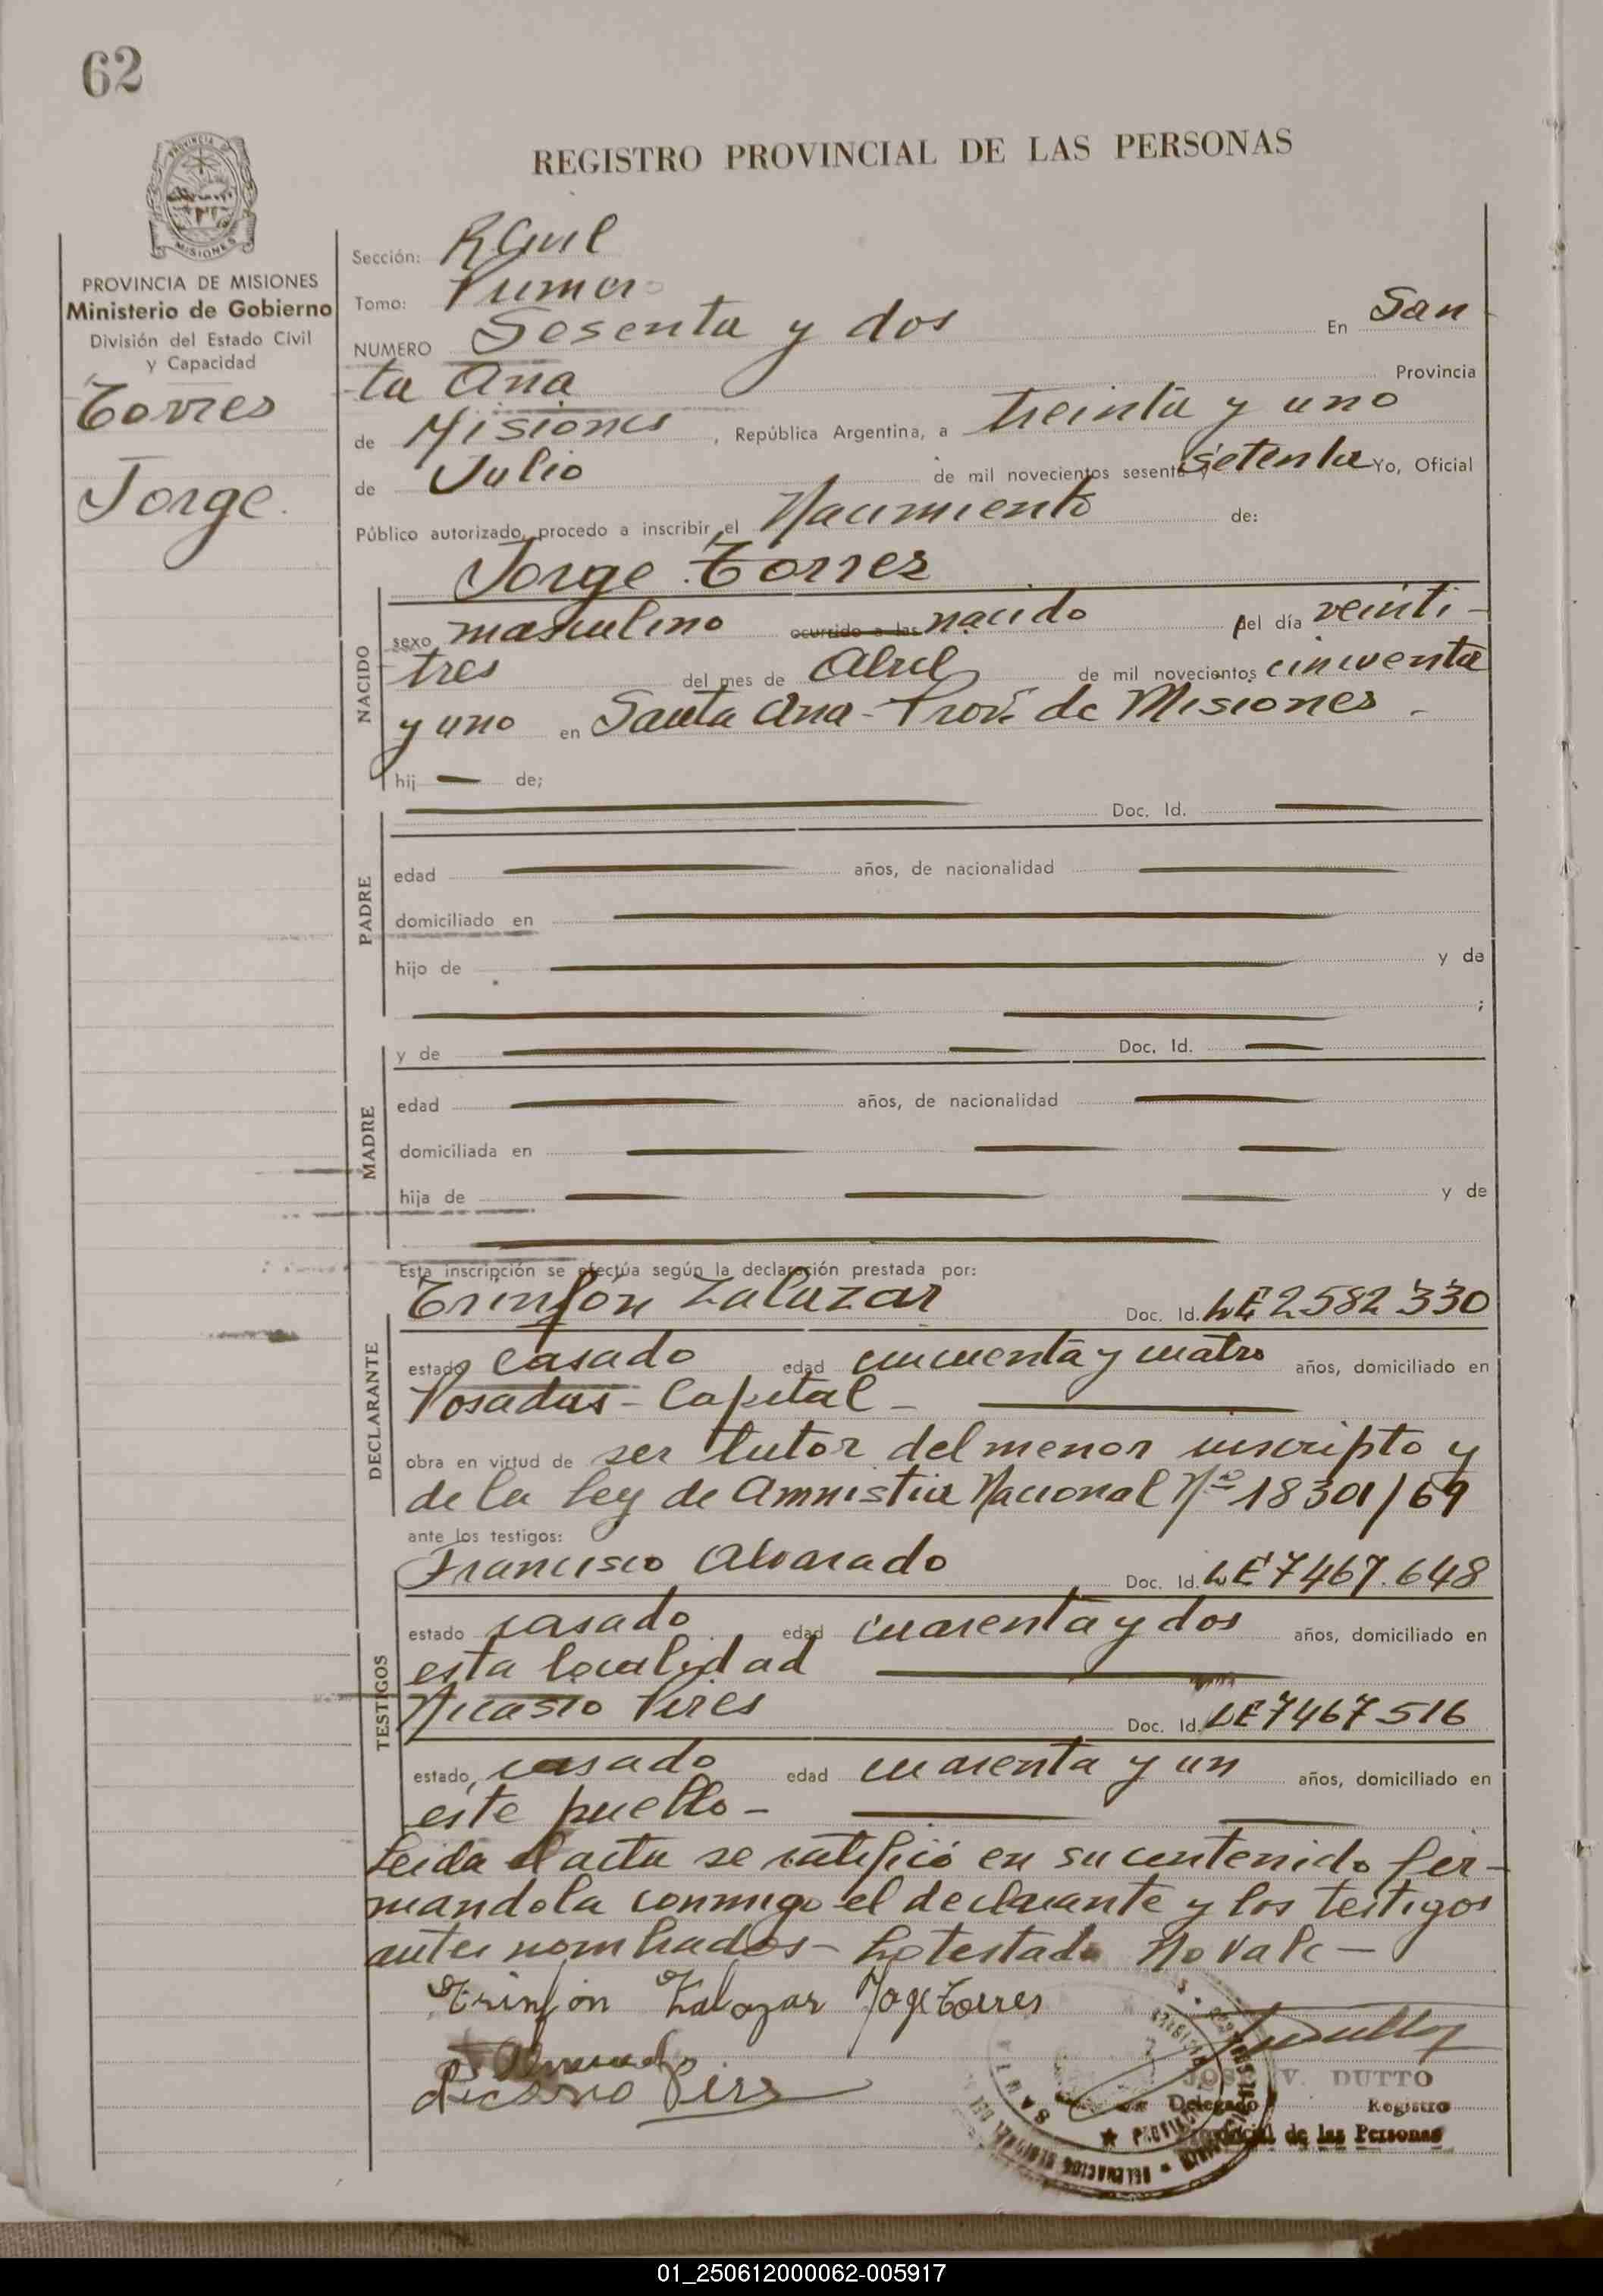 62
REGISTRO PROVINCIAL DE LAS PERSONAS
PROVINCIA DE
MISIONES
PROVINCIA DE MISIONES
Ministerio de Gobierno
División del Estado Civil
y Capacidad
Torres
Jorge.
Sección: R. Civil
Tomo: Primero
NUMERO Sesenta y dos En San
ta Ana Provincia
de Misiones, República Argentina, a treinta y uno
de Julio de mil novecientos sesenta setenta Yo, Oficial
Público autorizado, procedo a inscribir el Nacimiento de:
Jorge Torres
NACIDO
sexo masculino ocurrido a las nacido del día veinti-
tres del mes de Abril de mil novecientos cincuenta
y uno en Santa Ana - Prov. de Misiones -
hij — de;
Doc. Id.
PADRE
edad años, de nacionalidad
domiciliado en
hijo de y de
;
y de Doc. Id.
MADRE
edad años, de nacionalidad
domiciliada en
hija de y de
Esta inscripción se efectúa según la declaración prestada por:
DECLARANTE
Trinfón Zalazar Doc. Id. LE 2582330
estado casado edad cincuenta y cuatro años, domiciliado en
Posadas - Capital -
obra en virtud de ser tutor del menor inscripto y
de la ley de Amnistia Nacional Nº 18301/69
ante los testigos:
TESTIGOS
Francisco Alvarado Doc. Id. LE 7467.648
estado casado edad cuarenta y dos años, domiciliado en
esta localidad
Nicasio Pires Doc. Id. LE 7467516
estado casado edad cuarenta y un años, domiciliado en
este pueblo -
Leida el acta se ratificó en su contenido fir-
mandola conmigo el declarante y los testigos
antes nombrados - Lo testado no vale -
Trinfon Zalazar Jorge Torres
Alvarado
Nicasio Pires
JOSE V. DUTTO
Delegado Registro
Provincial de las Personas
01_250612000062-005917